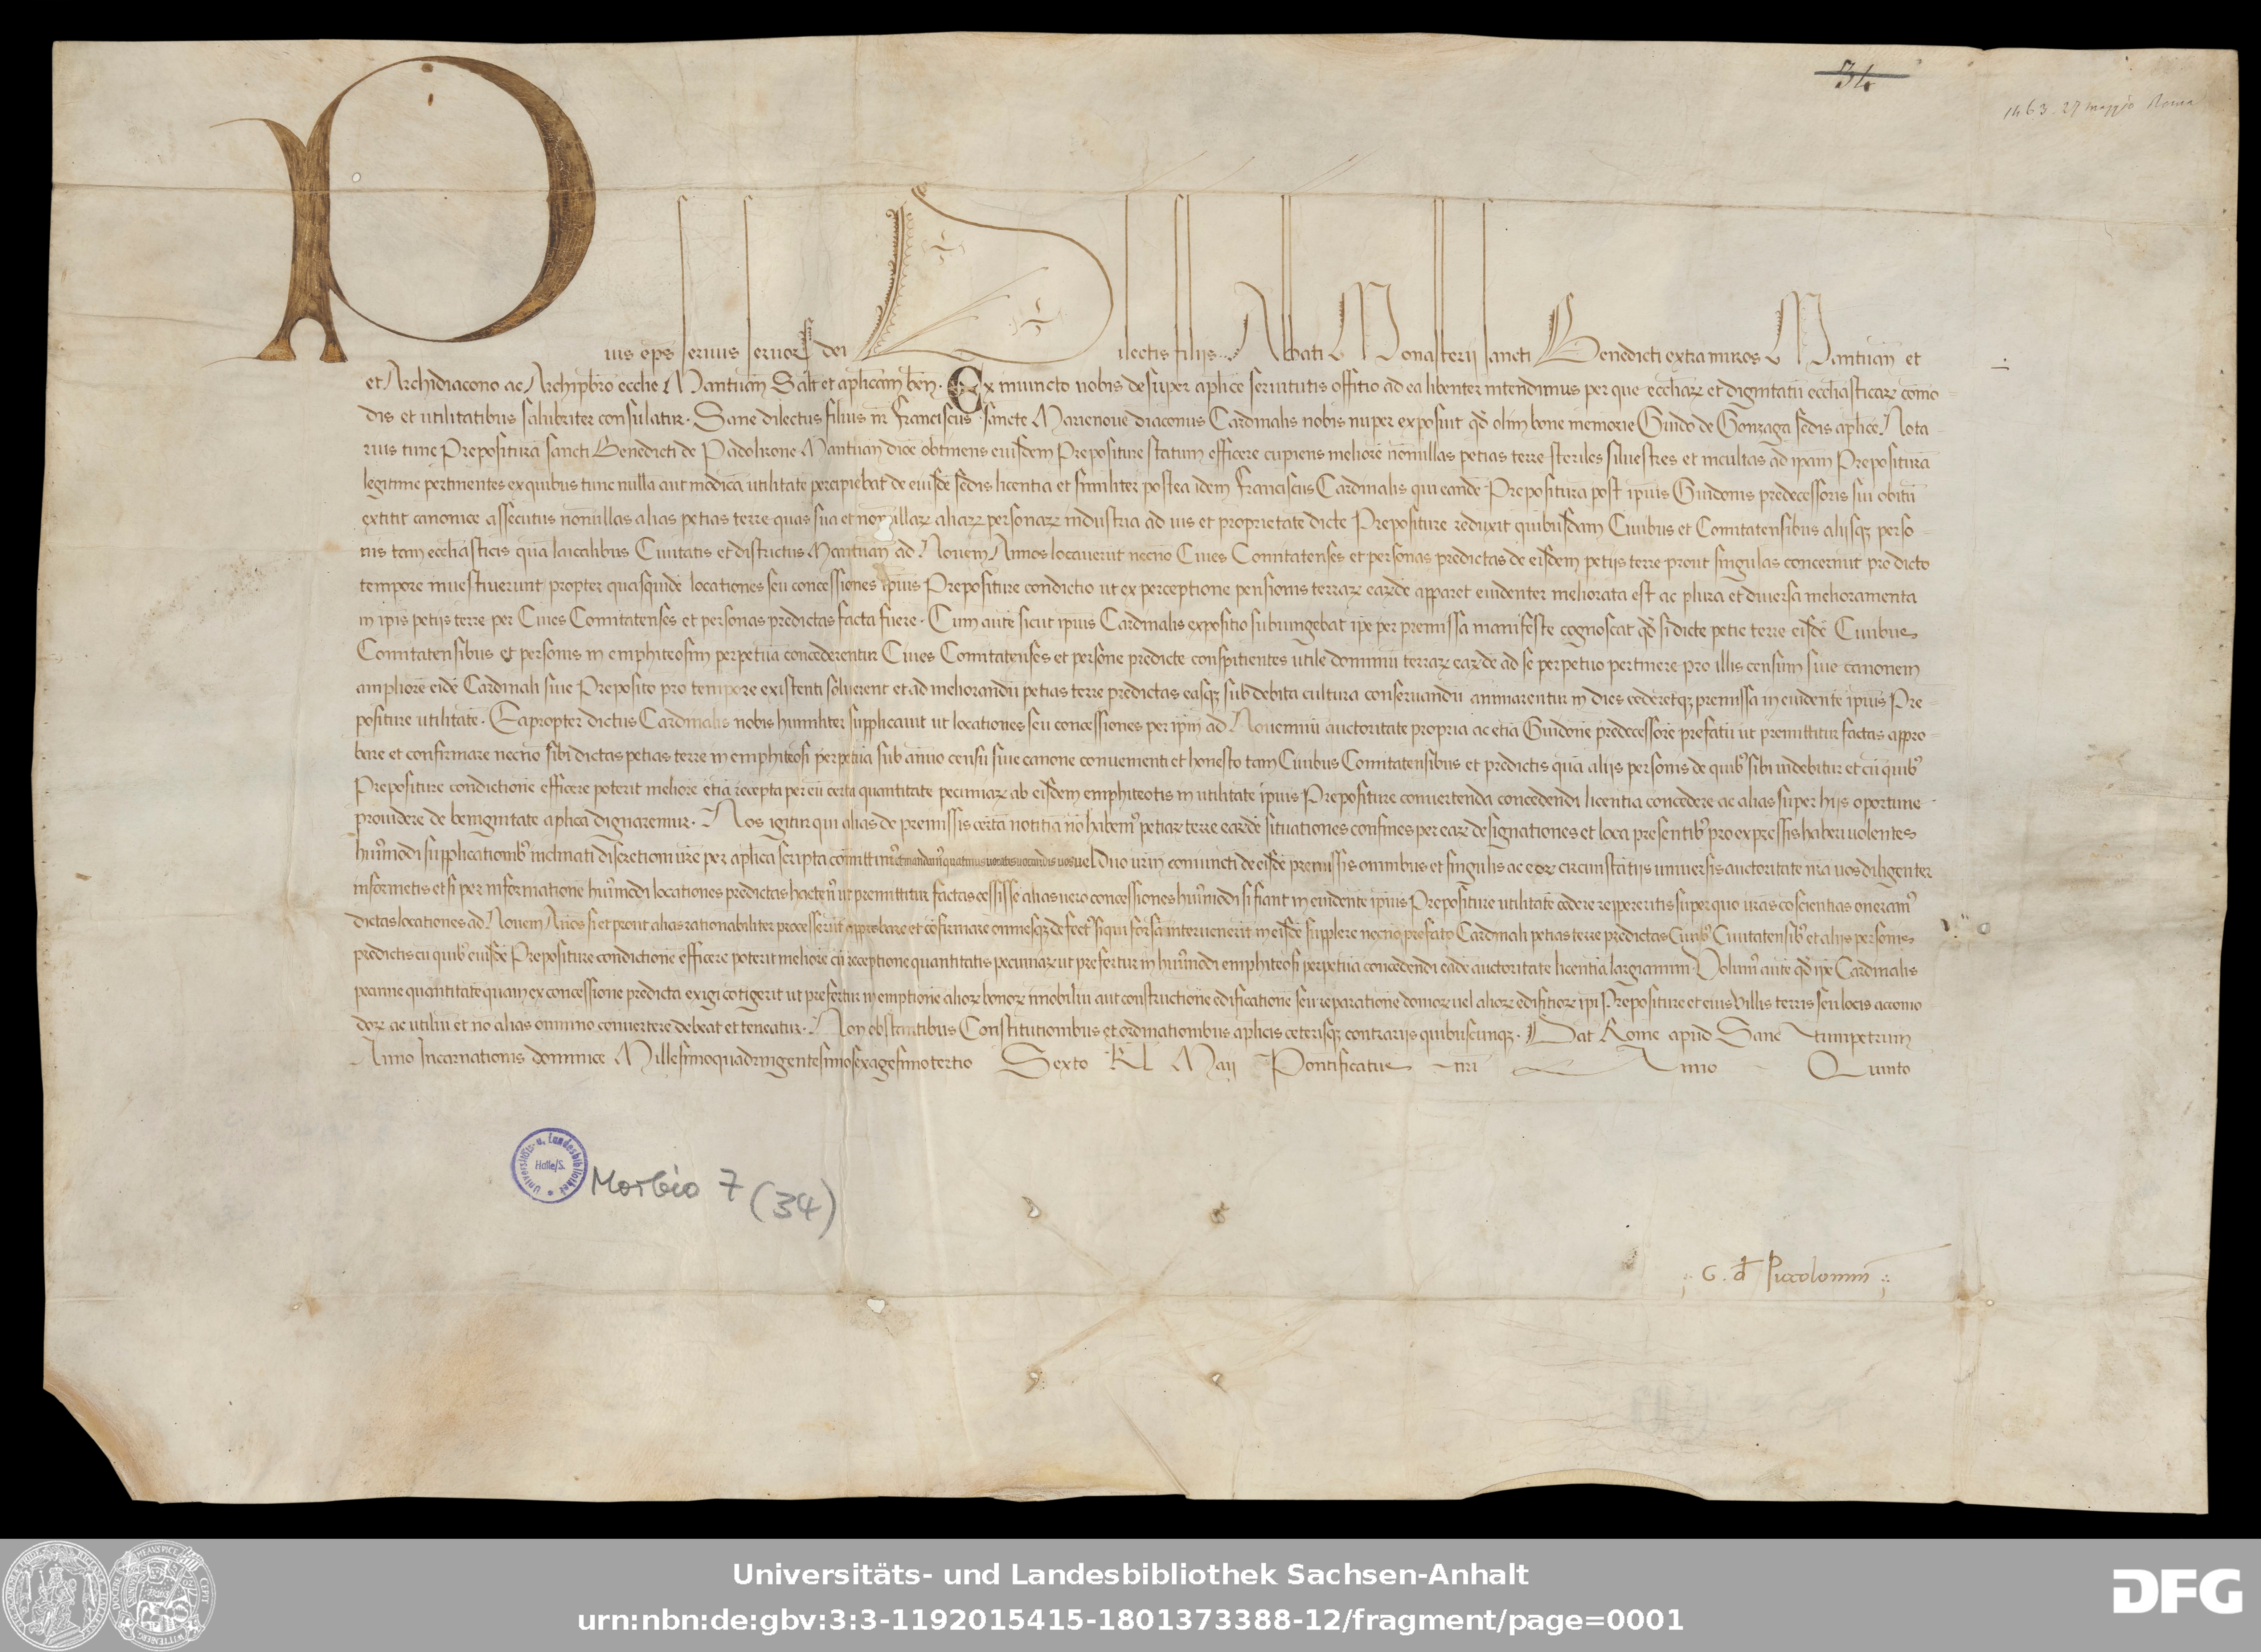 34
1463. 27 maggio Roma
Pius eps seruus seruoꝝ dei Dilectis filijs Abbati Monasterij sancti Benedicti extra muros Mantuan̄ et
et Archidiacono ac Archipbro ecclie Mantuan̄ Salt̄ et aplicam ben̄. Ex iniuncto nobis desuper aplice seruitutis offitio ad ea libenter intendimus per que eccliaꝝ et dignitatū eccliasticaꝝ como
dis et utilitatibus salubriter consulatur. Sane dilectus filius nr̄ Franciscus sancte Marienoue diaconus Cardinalis nobis nuper exposuit qd̄ olim bone memorie Guido de Gonzaga sedis aplice Nota
rius tunc Prepositurā sancti Benedicti de Padolirone Mantuan̄ dioc̄ obtinens eiusdem Prepositure statum efficere cupiens meliorē nōnullas petias terre steriles siluestres et incultas ad ipam Prepositurā
legitime pertinentes ex quibus tunc nulla aut modica utilitate percipiebat de eiusdē sedis licentia et similiter postea idem Franciscus Cardinalis qui eandē Prepositurā post ipius Guidonis predecessoris sui obitū
extitit canonice assecutus nōnullas alias petias terre quas sua et nonnullaꝝ aliaꝝ personaꝝ industria ad ius et proprietatē dicte Prepositure reduxit quibusdam Ciuibus et Comitatensibus alijsqꝫ perso
nis tam ecclīasticis quā laicalibus Ciuitatis et districtus Mantuan̄ ad Nouem Annos locauerūt necnō Ciues Comitatenses et personas predictas de eisdem petijs terre prout singulas concernūt pro dicto
tempore inuestiuerunt propter quasquidē locationes seu concessiones ipius Prepositure condictio ut ex perceptione pensionis terraꝝ eaꝝdē apparet euidenter meliorata est ac plura et diuersa melioramenta
in ipis petijs terre per Ciues Comitatenses et personas predictas facta fuere. Cum autē sicut ipius Cardinalis expositio subiungebat ipe per premissa manifeste cognoscat qd̄ si dicte petie terre eisdē Ciuibus
Comitatensibus et personis in emphiteosim perpetuā concederentur Ciues Comitatenses et persone predicte conspitientes utile dominiū terraꝝ eaꝝdē ad se perpetuo pertinere pro illis censum siue canonem
ampliorē eidē Cardinali siue Preposito pro tempore existenti soluerent et ad meliorandū petias terre predictas easqꝫ sub debita cultura conseruandū animarentur in dies cederetqꝫ premissa in euidentē ipius Pre
positure utilitatē. Eapropter dictus Cardinalis nobis humiliter supplicauit ut locationes seu concessiones per ipm̄ ad Nouenniū auctoritate propria ac etiā Guidonē predecessorē prefatū ut premittitur factas appro
bare et confirmare necnō sibi dictas petias terre in emphiteosi perpetuā sub annuo censu siue canone conuenienti et honesto tam Ciuibus Comitatensibus et predictis quā alijs personis de quibꝰ sibi uidebitur et cū quibꝰ
Prepositure condictionē efficere poterit meliorē etiā recepta per eū certa quantitate pecuniaꝝ ab eisdem emphiteotis in utilitatē ipius Prepositure conuertenda concedendi licentiā concedere ac alias super hijs oportune
prouidere de benignitate aplica dignaremur. Nos igitur qui alias de premissis certā notitiā nō habemꝰ petiaꝝ terre eaꝝdē situationes confines per eaꝝ designationes et loca presentibꝰ pro expressis haberi uolentes
huiꝰmodi supplicationibꝰ inclinati discretioni ur̄e per aplica scripta comittimꝰ et mandamꝰ quatinus uocatis uocandis uos uel Duo ur̄m coniuncti de eisdē premissis omnibus et singulis ac eoꝝ circunstātijs uniuersis auctoritate nr̄a uos diligenter
informetis et si per informationē huiꝰmodi locationes predictas hactenꝰ ut premittitur factas cessisse alias uero concessiones huiꝰmodi si fiant in euidentē ipius Prepositure utilitatē cedere reppereritis super quo ur̄as cōscientias oneramꝰ
dictas locationes ad Nouem Annos si et prout alias rationabiliter processerūt approbare et cōfirmare omnesqꝫ defectꝰ si qui forsā interuenerit in eisdē supplere necnō prefato Cardinali petias terre predictas Ciuibꝰ Ciuitatensibꝰ et alijs personis
predictis cū quibꝰ eiusdē Prepositure condictionē efficere poterit meliorē cū receptione quantitatis pecuniaꝝ ut prefertur in huiꝰmodi emphiteosi perpetuā concedendi eadē auctoritate licentiā largiamini. Volumꝰ autē qd̄ ipe Cardinalis
pecunie quantitatē quam ex concessione predicta exigi cōtigerit ut prefertur in emptionē alioꝝ bonoꝝ īmobiliū aut constructionē edificationē seu reparationē domoꝝ uel alioꝝ edifitioꝝ ipi Prepositure et eius Villis terris seu locis accomo
doꝝ ac utiliū et nō alias omnino conuertere debeat et teneatur. Non obstantibus Constitutionibus et ordinationibus aplicis ceterisqꝫ contrarijs quibuscunqꝫ. Dat̄ Rome apud Sanctumpetrum
Anno Incarnationis dominice Millesimoquadringentesimosexagesimotertio Sexto Kl̄ Maij Pontificatus nr̄i Anno Quinto
Universitäts- u. Landesbibliothek Halle/S.
Morbio 7 (34)
G. d Piccolomin
Universitäts- und Landesbibliothek Sachsen-Anhalt
urn:nbn:de:gbv:3:3-1192015415-1801373388-12/fragment/page=0001
DFG